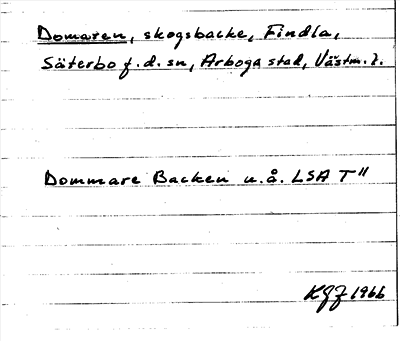 Domaren, skogsbacke, Findla,
Säterbo f.d. sn, Arboga stad, Västm. l.
Dommare Backen u.å. LSA T"
1966